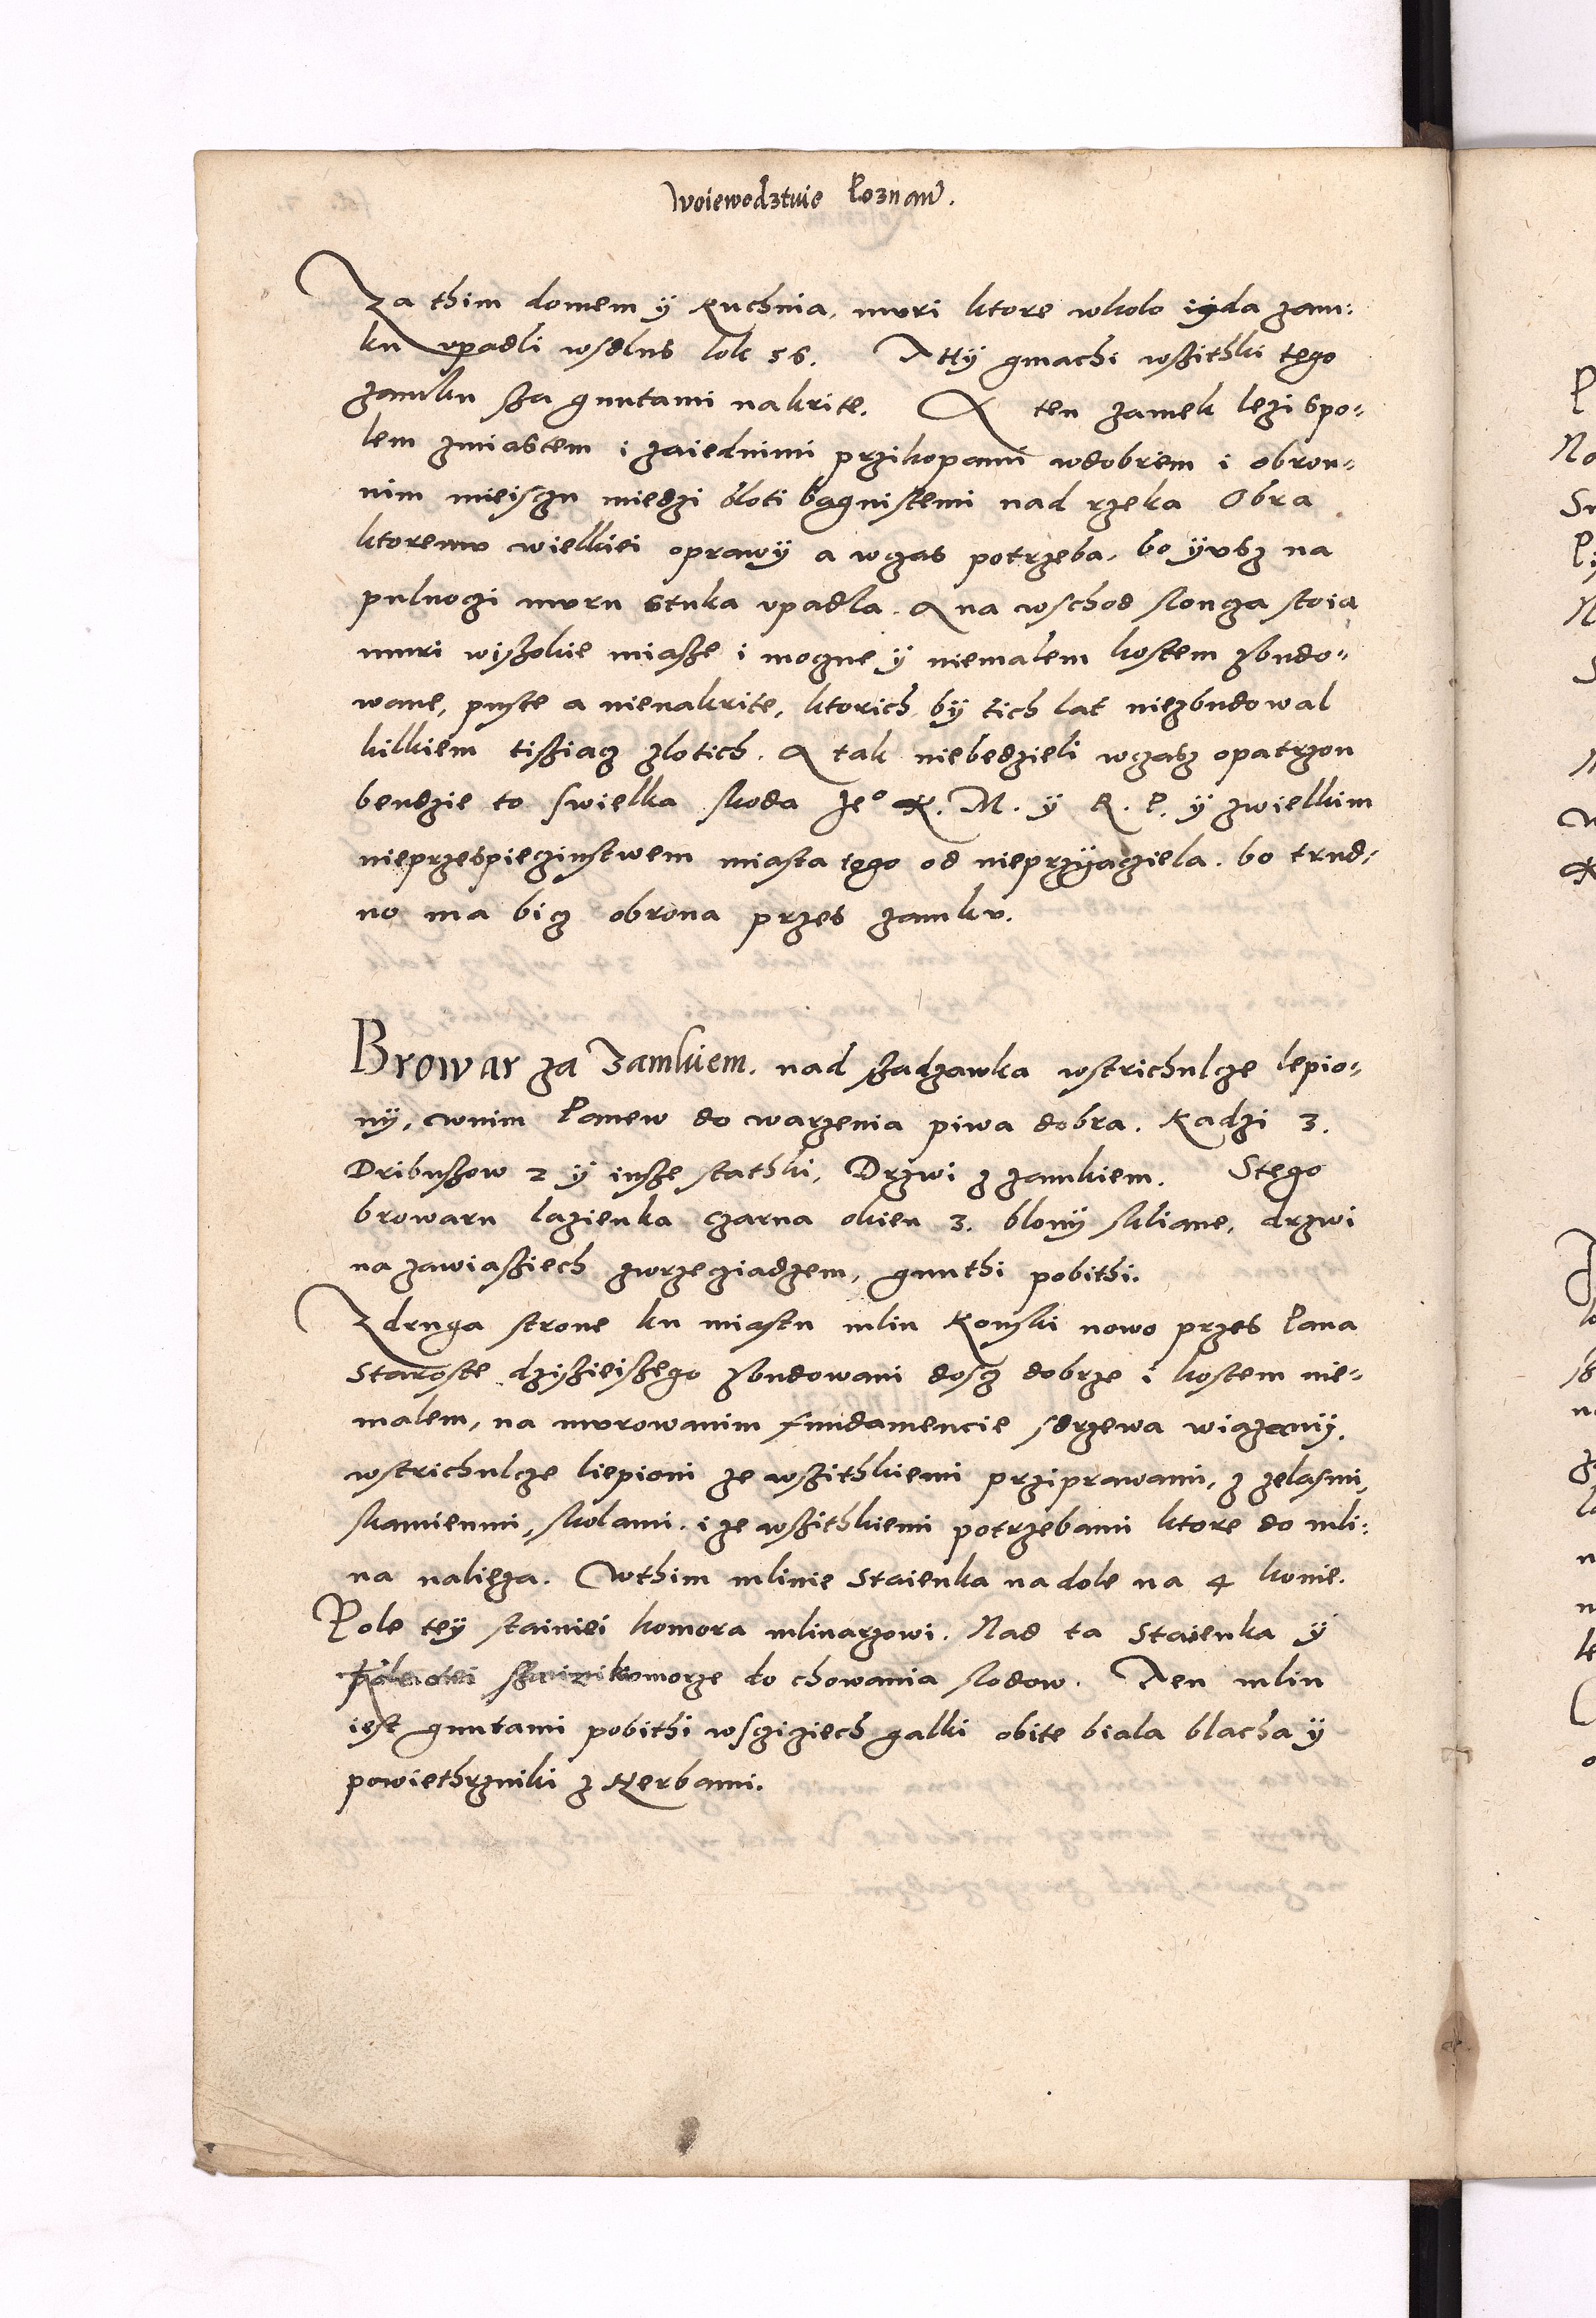 Woiewodztwie Poznan̄.
Za thim domem ÿ Kuchnia, mvri ktore wkolo iÿda zam:
ku vpadli wsdlus lok 56. A tÿ gmachi wßithki tego
zamku ßa guntami nakrite. A ten zamek lezi spo-
lem zmiastem i zaiednimi przikopami wdobrem i obron-
nim mieisczu miedzi bloti bagnistemi nad rzeka Obra
ktoremv wielkiei oprawÿ a wczas potrzeba, bo ÿvsz na
pulnoczi mvru stuka vpadla. A na wschod slonca stoia
muri wisokie miasze i moczne ÿ niemalem kostem zbudo-
wane, puste a nienakrite, ktorich bÿ tich lat niezbudowal
kilkiem tißiacz zlotich. A tak niebedzieli wczasz opatrzon
bendzie to swielka skoda Je° K. M. ÿ R. P. ÿ zwielkim
nieprzespieczinstwem miasta tego od nieprzÿaciela. bo trud-
no ma bicz obrona przes zamkv.
Browar za Zamkiem. nad ßadzawka wstrichulcze lepio-
nÿ, wnim Panew do warzenia piwa dobra. Kadzi 3.
Dribußow 2 ÿ insze stathki, Drzwi z zamkiem. Stego
browaru lazienka czarna okien 3. blonÿ skliane, drzwi
na zawiaßiech zwrzecziadzem, gunthi pobithi.
Zdruga strone ku miastu mlin Konski nowo przes Pana
Staroste dzißieißego zbudowani dosz dobrze i kostem nie-
malem, na mvrowanim fundamencie sdrzewa wiazanÿ,
wstrichulcze liepioni ze wßithkiemi przÿprawami, z zelasmi,
skamienmi, skolami. i ze wßithkiemi potrzebami ktore do mli:
na nalieza. Wthim mlinie Staienka na dole na 4 konie.
Pole teÿ stainiei komora mlinarzowi. Nad ta Staienka ÿ
komorze do chowania slodow. Ten mlin
iest guntami pobithi wscziczech galki obite biala blacha ÿ
powiethrzniki z Herbami.